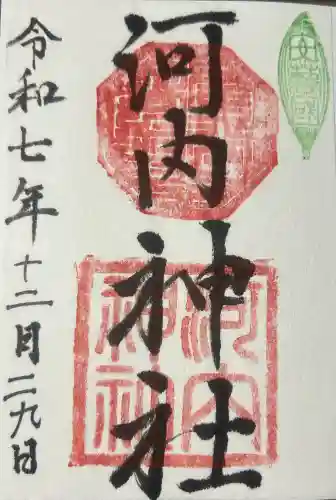 河内神社
令和七年十二月二九日
河内
神社